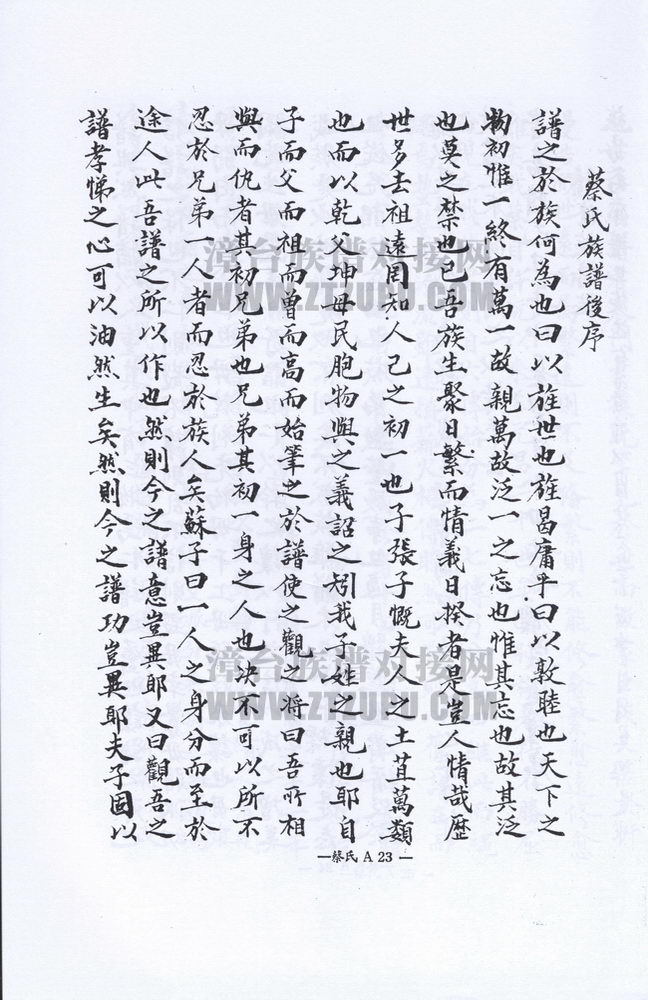 蔡氏族譜後序
譜之於族何為也曰以旌世也旌曷庸乎曰以敦睦也天下之
物初惟一終有萬一故親萬故泛一之忘也惟其忘也故其泛
也莫之禁也已吾族生聚日繁而情義日揆者是豈人情哉歷
世多去祖遠罔知人己之初一也子張子慨夫人之土苴萬類
也而以乾父坤母民胞物與之義詔之矧我子姓之親也耶自
子而父而祖而曾而高而始筆之於譜使之觀之将曰吾所相
與而仇者其初兄弟也兄弟其初一身之人也决不可以所不
忍於兄弟一人者而忍於族人矣蘇子曰一人之身分而至於
途人此吾譜之所以作也然則今之譜意豈異耶又曰觀吾之
譜孝悌之心可以油然生矣然則今之譜功豈異耶夫子固以
—蔡氏 A 23 —
漳台族谱对接网
WWW.ZTZUPU.COM
漳台族谱对接网
WWW.ZTZUPU.COM